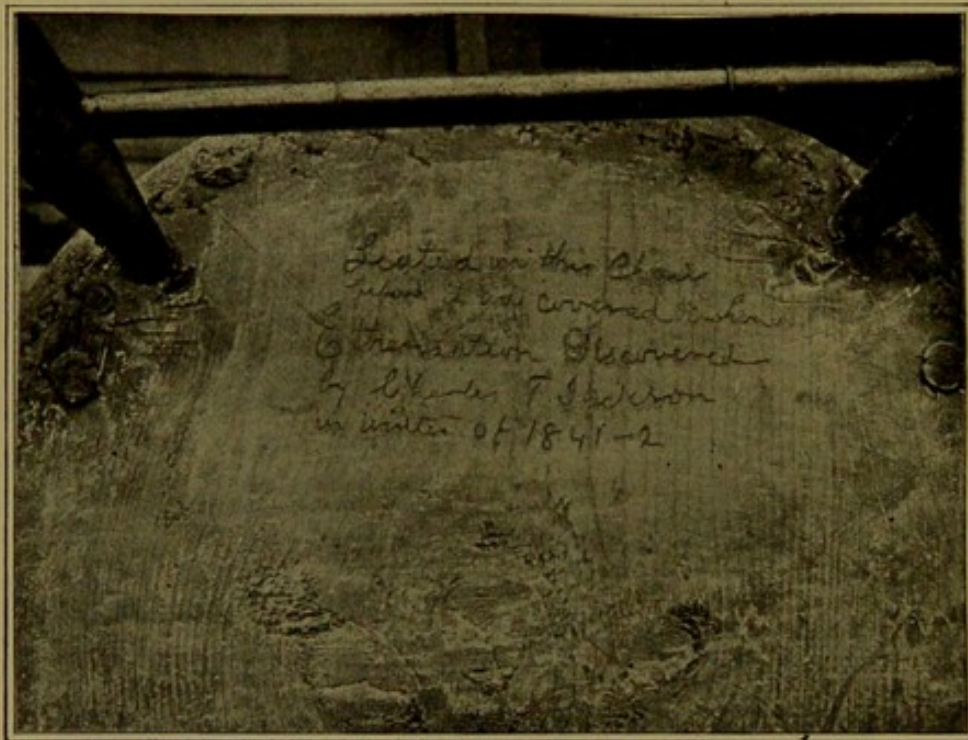 Seated in this Chair
covered when
Etherization Discovered
by Charles T Jackson
in winter of 1841-2